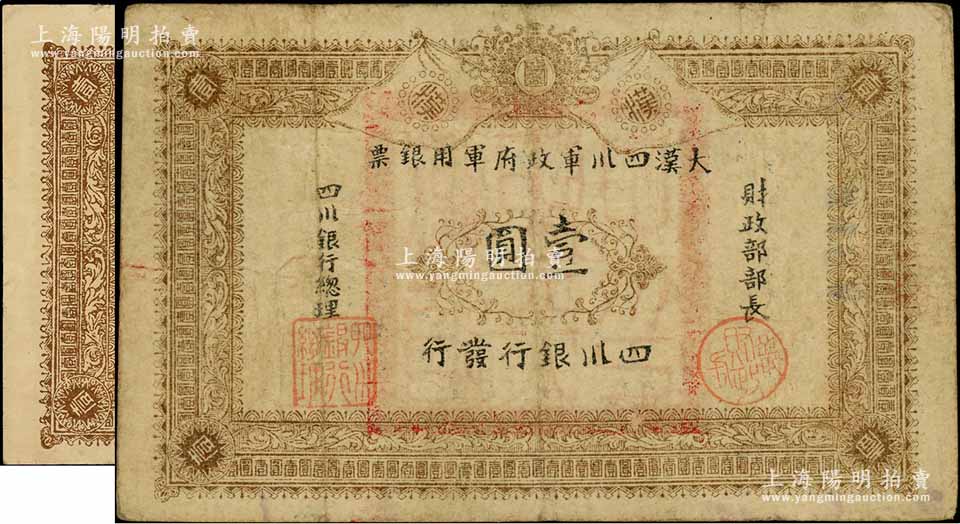 上海陽明拍賣
www.yangmingauction.com
上海陽明拍賣
www.yangmingauction.com
圓
漢
漢
壹
圓
大漢四川軍政府軍用銀票
財政部部長
壹圓
四川銀行總理
四川銀行發行
上海陽明拍賣
www.yangmingauction.com
壹
圓
上海陽明拍賣
www.yangmingauction.com